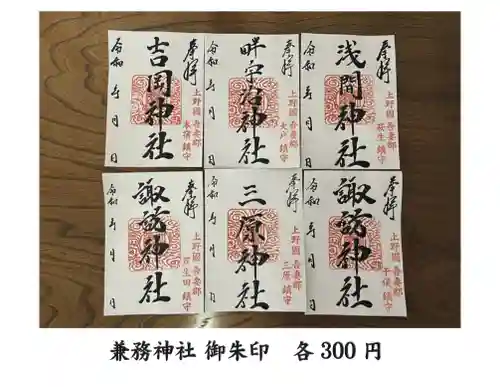 奉拝
上野國 吾妻郡
本宿 鎮守
吉岡神社
令和 年 月 日
奉拝
上野國 吾妻郡
大戸 鎮守
畔宇治神社
令和 年 月 日
奉拝
上野國 吾妻郡
萩生 鎮守
浅間神社
令和 年 月 日
奉拝
上野國 吾妻郡
芦生田 鎮守
諏訪神社
令和 年 月 日
奉拝
上野國 吾妻郡
三原 鎮守
三原神社
令和 年 月 日
奉拝
上野國 吾妻郡
干俣 鎮守
諏訪神社
令和 年 月 日
兼務神社 御朱印 各300円